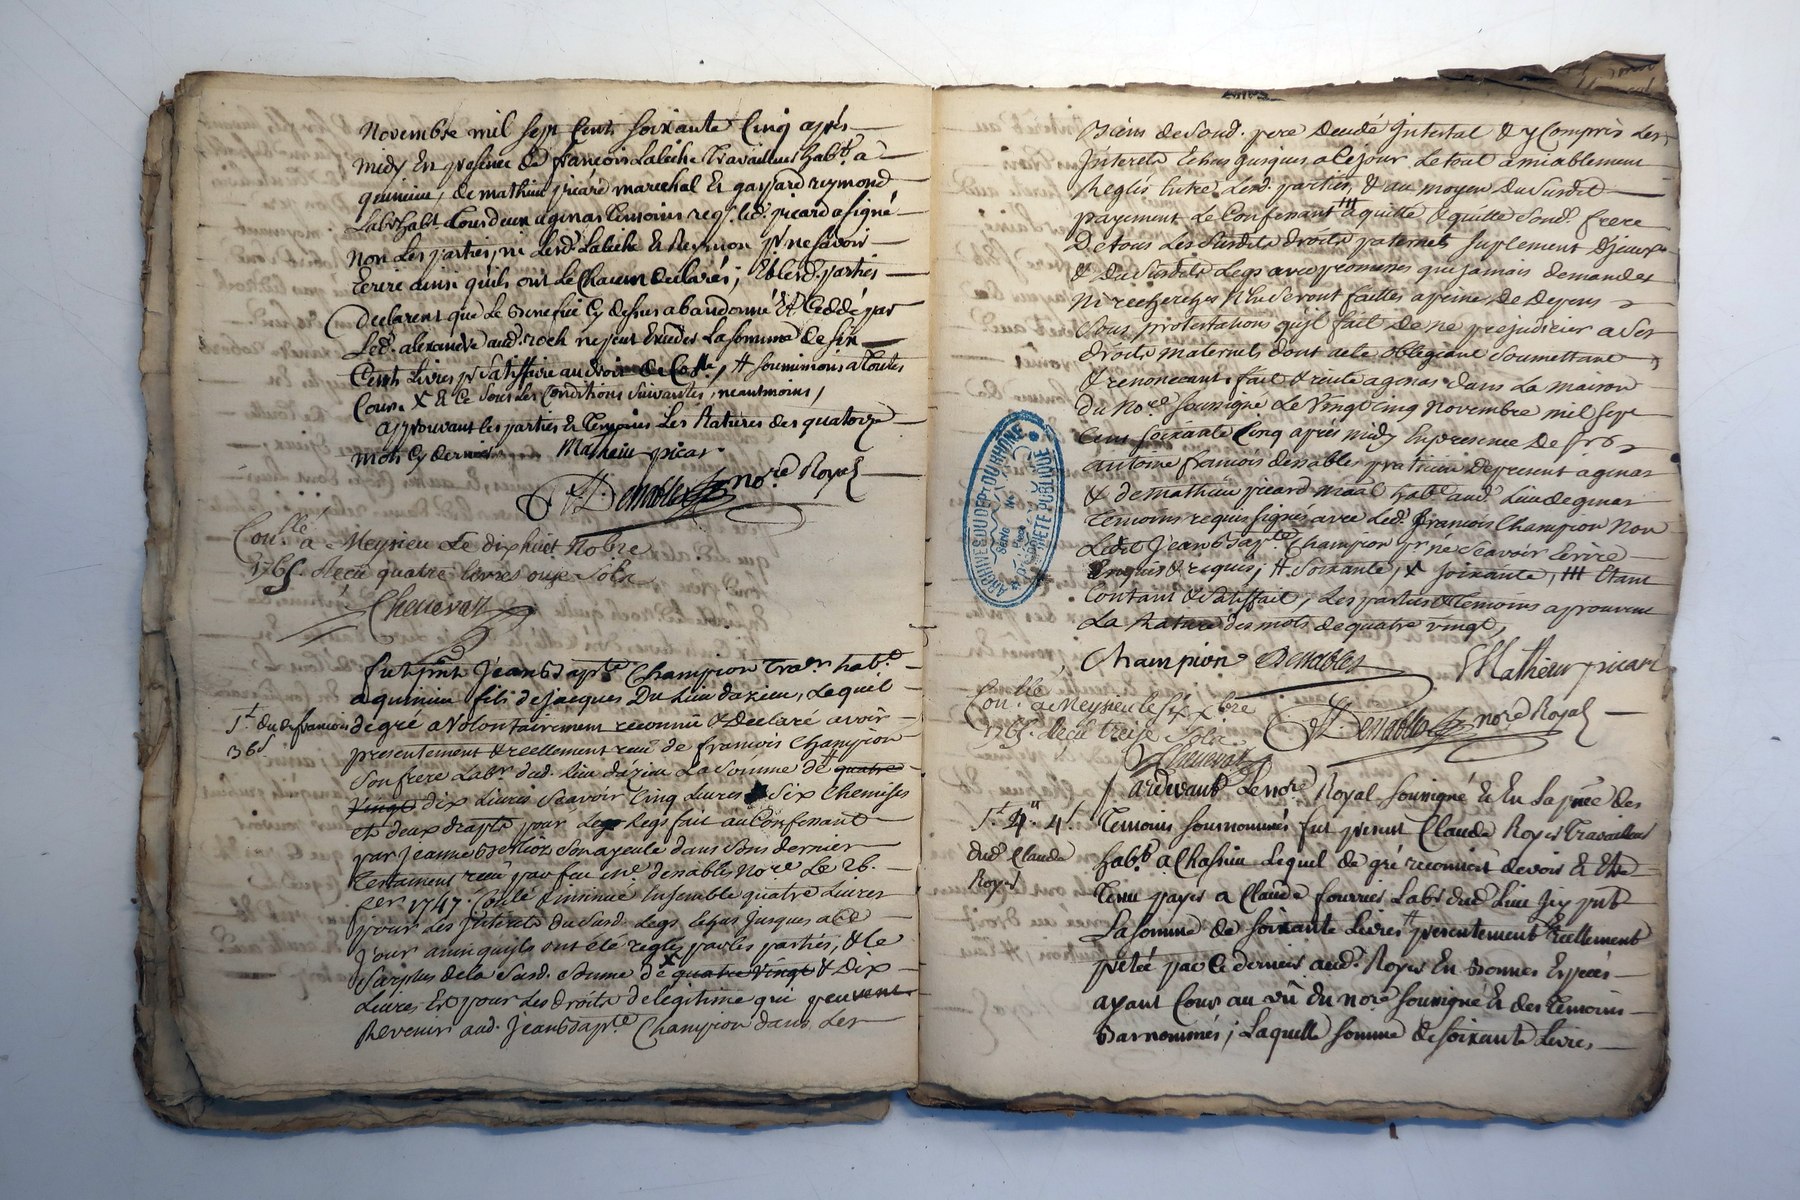 Novembre mil sept Cent soixante Cinq après
midy En presence de francois Labiche Travailleur habt. à
quinieu, de mathieu picard marechal Et gaspard reymond
Labr. habt. tous deux a genas temoins req. led. picard a signé
non Les parties, ni lesd. Labiche & Reymon pr ne savoir
Ecrire ainsi qu'ils ont Le Chacun declarés; Et lesd. parties
Declarent que Le Benefice Cy dessus abandonné & Ceddé par
Led. alexandre aud. roch ne peut Exceder La somme de six
Cents Livres
Cour. X & Ce sous Les Conditions Suivantes, neantmoins,
approuvant les parties & temoins Les Ratures des quatorze
mots Cy derniers Matheiu picar
Desnables nore. Royal
Con.llé à Meysieu Le dixhuit Xobre
1765. Recu quatre livres onze Sols
Chenevaz
fut pnt Jean Bapte. Champion Travr. habt.
a quinieu fils de Jacques Du Lieu dazieu, Lequel
de gré a Volontairement reconnu & Declaré avoir
St. du de francois
36s
presentement & reellement recu de francois Champion
son frere Labr. dud. Lieu dazieu La Somme de quatre
vingt dix Livres Scavoir Cinq Livres Six Chemises
et deux draps pour Le Legs fait au Confessant
par Jeanne son ayeule dans Sons dernier
Testament recu par feu me. desnables Nore. Le 26.
1747. Ensemble quatre Livres
pour Les Interets Du Susd. Legs Echus jusques a Ce
Jour ainsi quils ont été reglés par les parties, & le
Surplus de la Susd. Somme de quatre vingt & Dix
Livres Est pour Les droits de legitime qui peuvent
Revenir aud. Jean Bapte. Champion dans Les
Biens de Sond. pere Decedé Intestat & y Compris Les
Interets Echus jusques a Ce jour. Le tout amiablement
Reglés Entre Lesd. parties, & au moyen Du Susdit
payement Le Confessant a quitté & quitte Sond. frere
De tous Les Susdits droits paternels Suplement Diceux
& Du Susdit Legs avec promesses que jamais demandes
ni recherches N'en Seront faittes a peine De Depens
Sous protestations qu'il fait De ne prejudicier a Ses
droits maternels dont acte obligeant Soumettant
& renoncant. fait & recité a genas dans La maison
du Nore. Soussigné Le Vingt Cinq Novembre mil Sept
Cent Soixante Cinq après midy En presence De
antoine francois desnables praticien de present a genas
& de mathieu picard maal. habt. aud. Lieu de genas
temoins requis signés avec Led. francois Champion Non
Ledit Jean Bapte. Champion pr ne Scavoir Ecrire
Enquis & requis; # Soixante, X Soixante, ### Etant
Contant & Satisfait, Les parties & temoins aprouvent
La Rature des mots de quatre vingt,
Champion Desnables Matheiu picart
Con.llé à Meysieu le six Xbre
1765. Recu treize Sols
Chenevaz
Desnables nore. Royal
Pardevant Le nore. Royal soussigné & En La pnce des
St. 4ll. 4s.
dud. Claude
Royet
Temoins sousnommés fut present Claude Royet Travailleur
habt. a Chassieu Lequel de gré reconnoit devoir & Etre
tenu payer a Claude fournier Labr. dud. Lieu Icy pnt
La somme de soixante Livres # presentement & reellement
pretée par Ce dernier aud. Royet En Bonnes Especes
ayant Cour au vû du nore. soussigné & des temoins
Basnommés; Laquelle somme de soixante Livres,
ARCHIVES DU DEPT. DU RHONE
PROPRIETE PUBLIQUE